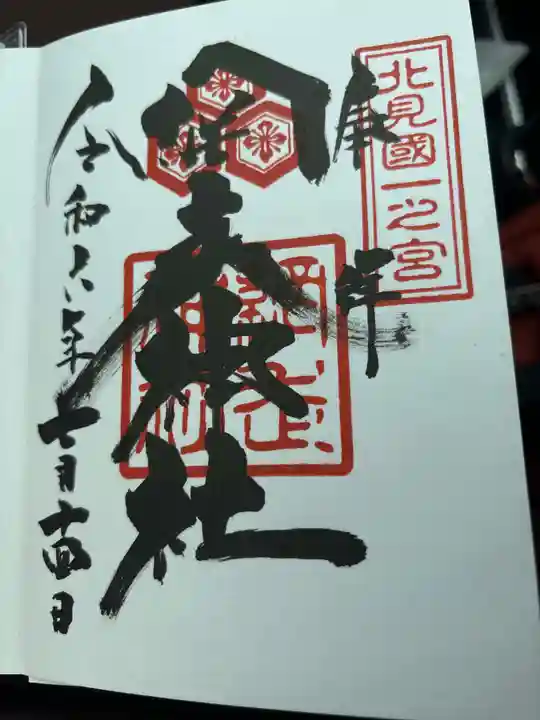 北見國一之宮
奉拝
網走神社
網走
神社
令和六年七月十四日